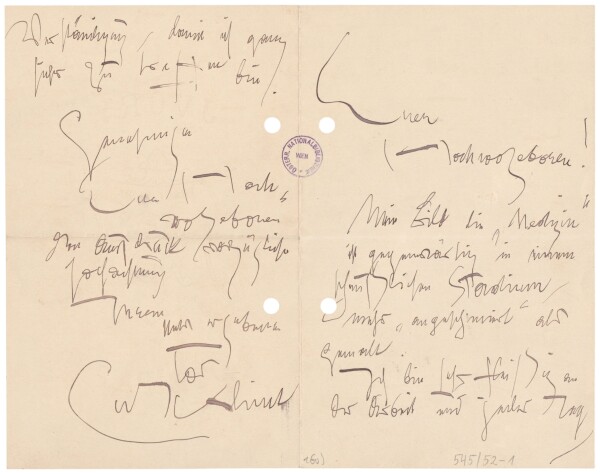 Euer
Hochwolgeboren!
Mein Bild die „Medizin“
ist gegenwärtig in einem
Stadium,
mehr „angeschmiert“ als
gemalt.
Ich bin sehr fleißig an
der Arbeit und jeder Tag
Verständigung, damit ich ganz
sicher zu treffen bin!
Genehmigen
Euer Hoch„
wolgeboren
den Ausdruck vorzüglicher
Hochachtung
Ihrem
ergebenen
Gustav Klimt
ÖSTERR. NATIONALBIBLIOTHEK
WIEN
545/52-1